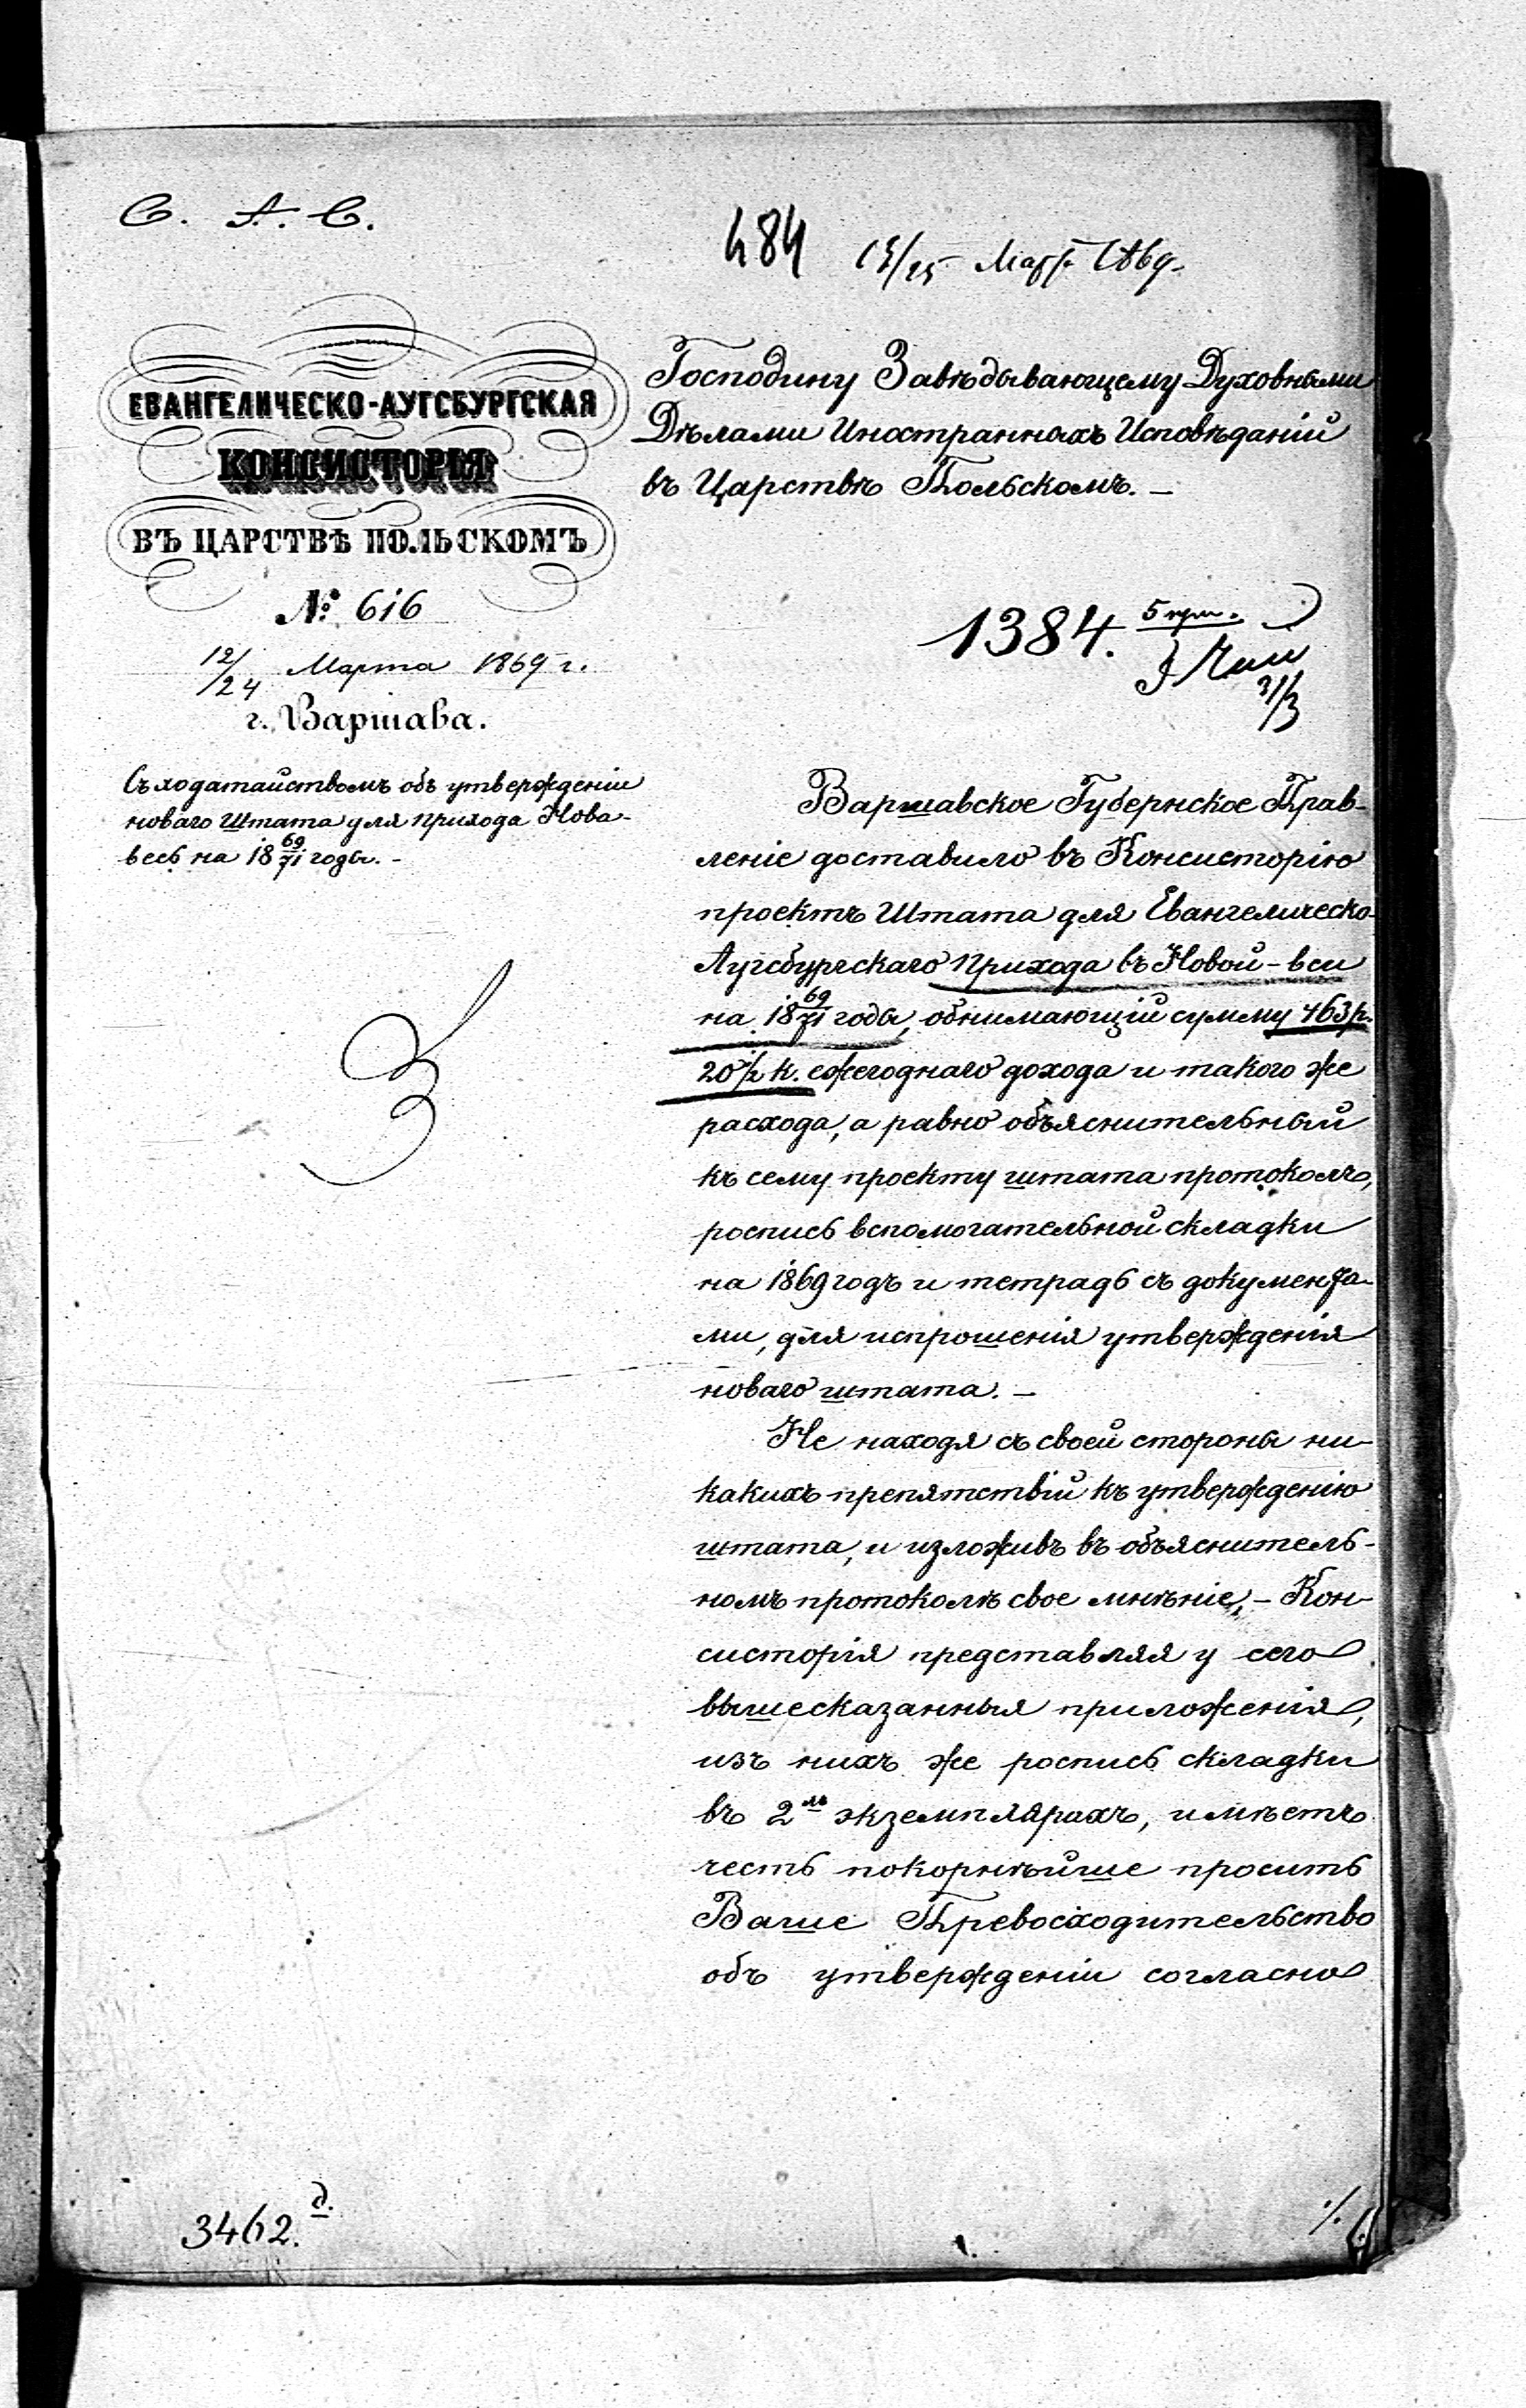 С. А. С.
484 13/25 Март. 1869.
ЕВАНГЕЛИЧЕСКО-АУГСБУРГСКАЯ
КОНСИСТОРІЯ
ВЪ ЦАРСТВѢ ПОЛЬСКОМЪ
№ 616
12/24 Марта 1869 г.
г. Варшава.
Съ ходатайствомъ объ утвержденіи
новаго Штата для прихода Нова-
весь на 18 69/71 годы. -
Господину Завѣдывающему Духовными
Дѣлами Иностранныхъ Исповѣданій
въ Царствѣ Польскомъ. —
1384. 5 прил.
31/3
Варшавское Губернское Прав-
леніе доставило въ Консисторію
проектъ Штата для Евангелическо-
Аугсбургскаго Прихода въ Новой-вси
на 18 69/71 годы, обнимающій сумму 463 р.
20 1/2 к. ежегоднаго дохода и такого же
расхода, а равно объяснительный
къ сему проекту штата протоколъ,
роспись вспомогательной складки
на 1869 годъ и тетрадь съ документа-
ми, для испрошенія утвержденія
новаго штата. —
Не находя съ своей стороны ни-
какихъ препятствій къ утвержденію
штата, и изложивъ въ объяснитель-
номъ протоколѣ свое мнѣніе, - Кон-
систорія представляя у сего
вышесказанныя приложенія,
изъ нихъ же роспись складки
въ 2хъ экземплярахъ, имѣетъ
честь покорнѣйше просить
Ваше Превосходительство
объ утвержденіи согласно
3462. д.
./.